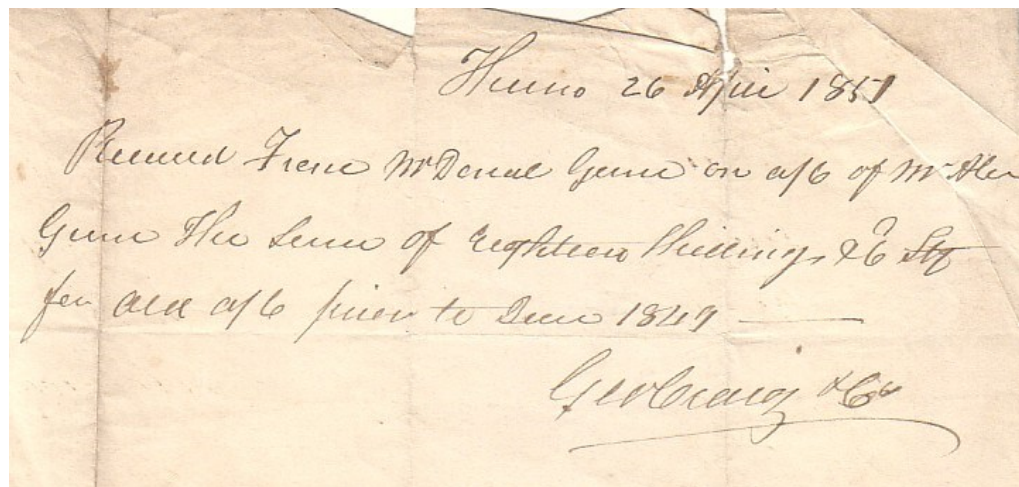 26 April 1851
Received From Mr Donal Gunn on a/c of Mr Alex
Gunn The Sum of Eighteen Shillings & 6 Stg
for all a/c prior to Decr 1849
Geo Craig & Co